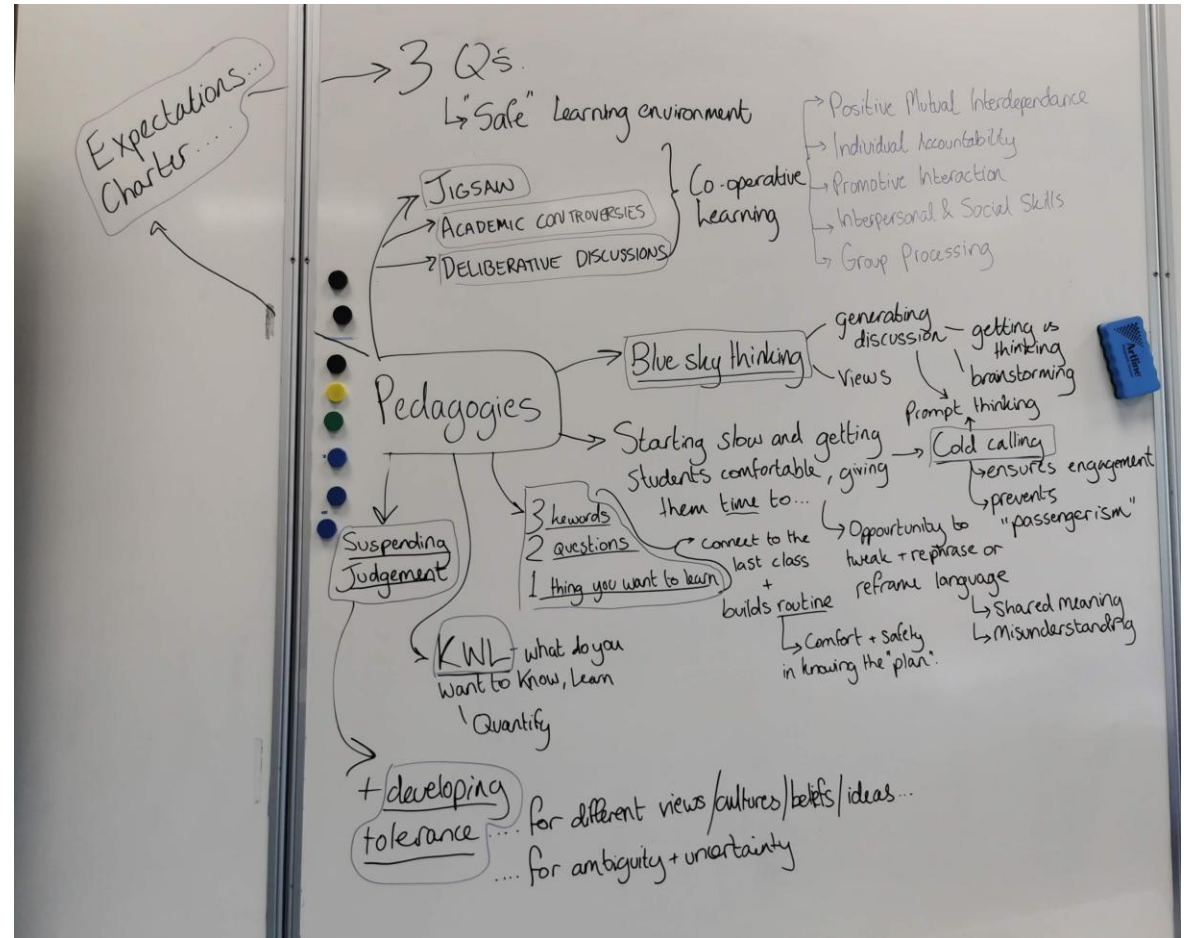 Expectations...
Charter....
3 Qs.
"Safe" Learning environment
JIGSAW
ACADEMIC CONTROVERSIES
DELIBERATIVE DISCUSSIONS
Co-operative
Learning
Positive Mutual Interdependance
Individual Accountability
Promotive Interaction
Interpersonal & Social Skills
Group Processing
Pedagogies
Blue sky thinking
generating
discussion
getting us
thinking
brainstorming
Views
Prompt thinking
Starting slow and getting
students comfortable, giving
them time to...
Cold calling
ensures engagement
prevents
"passengerism"
Oppourtunity to
tweak + rephrase or
reframe language
Shared meaning
Misunderstanding
3 kewords
2 questions
1 thing you want to learn
connect to the
last class
+
builds routine
Comfort + safety
in knowing the "plan".
Suspending
Judgement
KWL - what do you
want to Know, Learn
Quantify
+ developing
tolerance .... for different views/cultures/beliefs/ideas...
.... for ambiguity + uncertainty
Artline